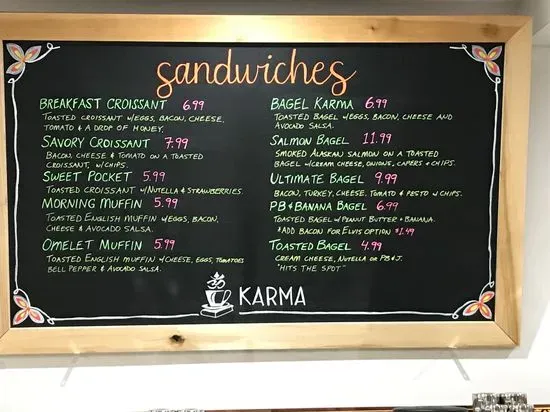 sandwiches
BREAKFAST CROISSANT 6.99
TOASTED CROISSANT W/EGGS, BACON, CHEESE,
TOMATO & A DROP OF HONEY.
SAVORY CROISSANT 7.99
BACON, CHEESE & TOMATO ON A TOASTED
CROISSANT, W/CHIPS.
SWEET POCKET 5.99
TOASTED CROISSANT W/NUTELLA & STRAWBERRIES.
MORNING MUFFIN 5.99
TOASTED ENGLISH MUFFIN W/EGGS, BACON,
CHEESE & AVOCADO SALSA.
OMELET MUFFIN 5.99
TOASTED ENGLISH MUFFIN W/CHEESE, EGGS, TOMATOES
BELL PEPPER & AVOCADO SALSA.
BAGEL KARMA 6.99
TOASTED BAGEL W/EGGS, BACON, CHEESE AND
AVOCADO SALSA.
SALMON BAGEL 11.99
SMOKED ALASKAN SALMON ON A TOASTED
BAGEL W/CREAM CHEESE, ONIONS, CAPERS + CHIPS.
ULTIMATE BAGEL 9.99
BACON, TURKEY, CHEESE, TOMATO & PESTO W/CHIPS.
PB & BANANA BAGEL 6.99
TOASTED BAGEL W/PEANUT BUTTER + BANANA.
*ADD BACON FOR ELVIS OPTION $1.49
TOASTED BAGEL 4.99
CREAM CHEESE, NUTELLA OR PB&J.
"HITS THE SPOT"
ॐ KARMA